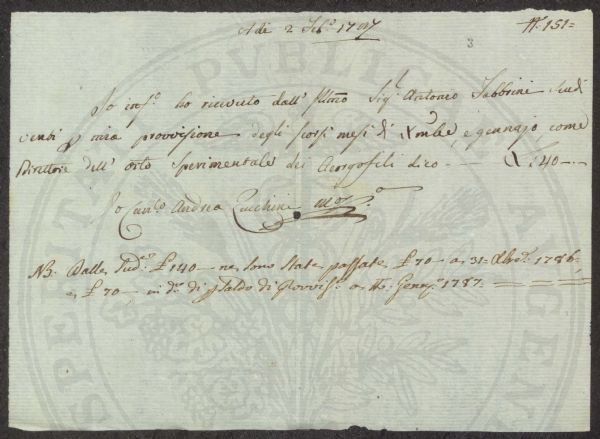 Adè 2 Feb.o 1787 ₶ 151=
3
Io inf.o ho ricevuto dall' Illmo Sig.r Antonio Fabbrini Scudi
venti p mia provvisione degli scorsi mesi di Xmbe, e gennajo come
Direttore dell' orto sperimentale dei Georgofili dico — £ 140 —
Io Cav.re Andrea Zucchini
NB. Dalle Sud.e £ 140 — ne sono state passate £ 70 — a 31= Xbre 1786=
e £ 70 — in d.o di Saldo di Provvis.e a tt.o Genn.o 1787 —
PUBBLICA